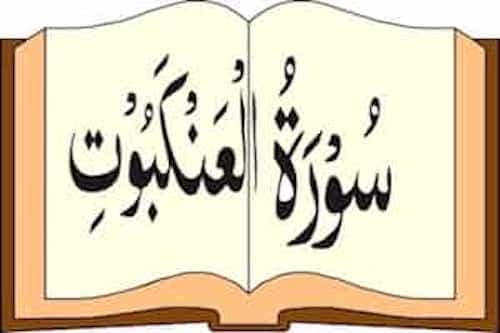 سُوْرَةُ الْعَنْكَبُوْتِ